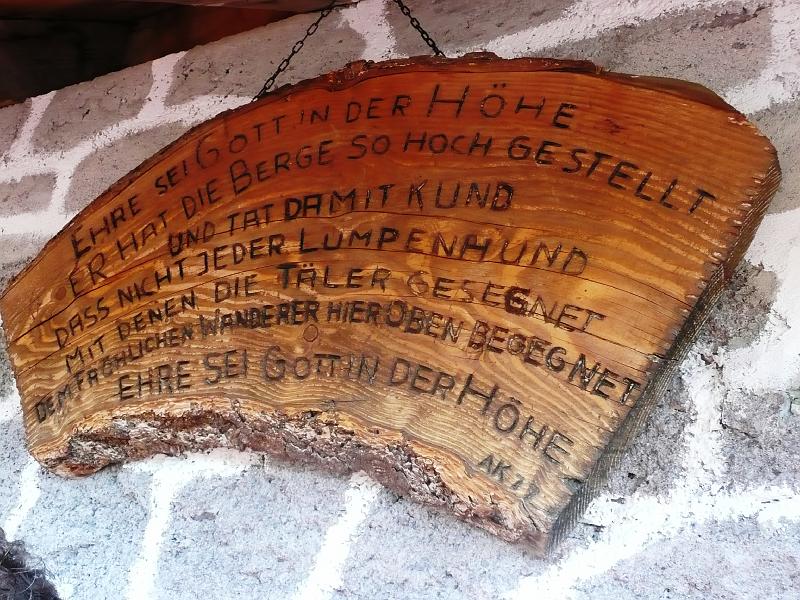 EHRE SEI GOTT IN DER HÖHE
ER HAT DIE BERGE SO HOCH GESTELLT
UND TAT DAMIT KUND
DASS NICHT JEDER LUMPENHUND
MIT DENEN DIE TÄLER GESEGNET
DEM FRÖHLICHEN WANDERER HIER OBEN BEGEGNET
EHRE SEI GOTT IN DER HÖHE
AK